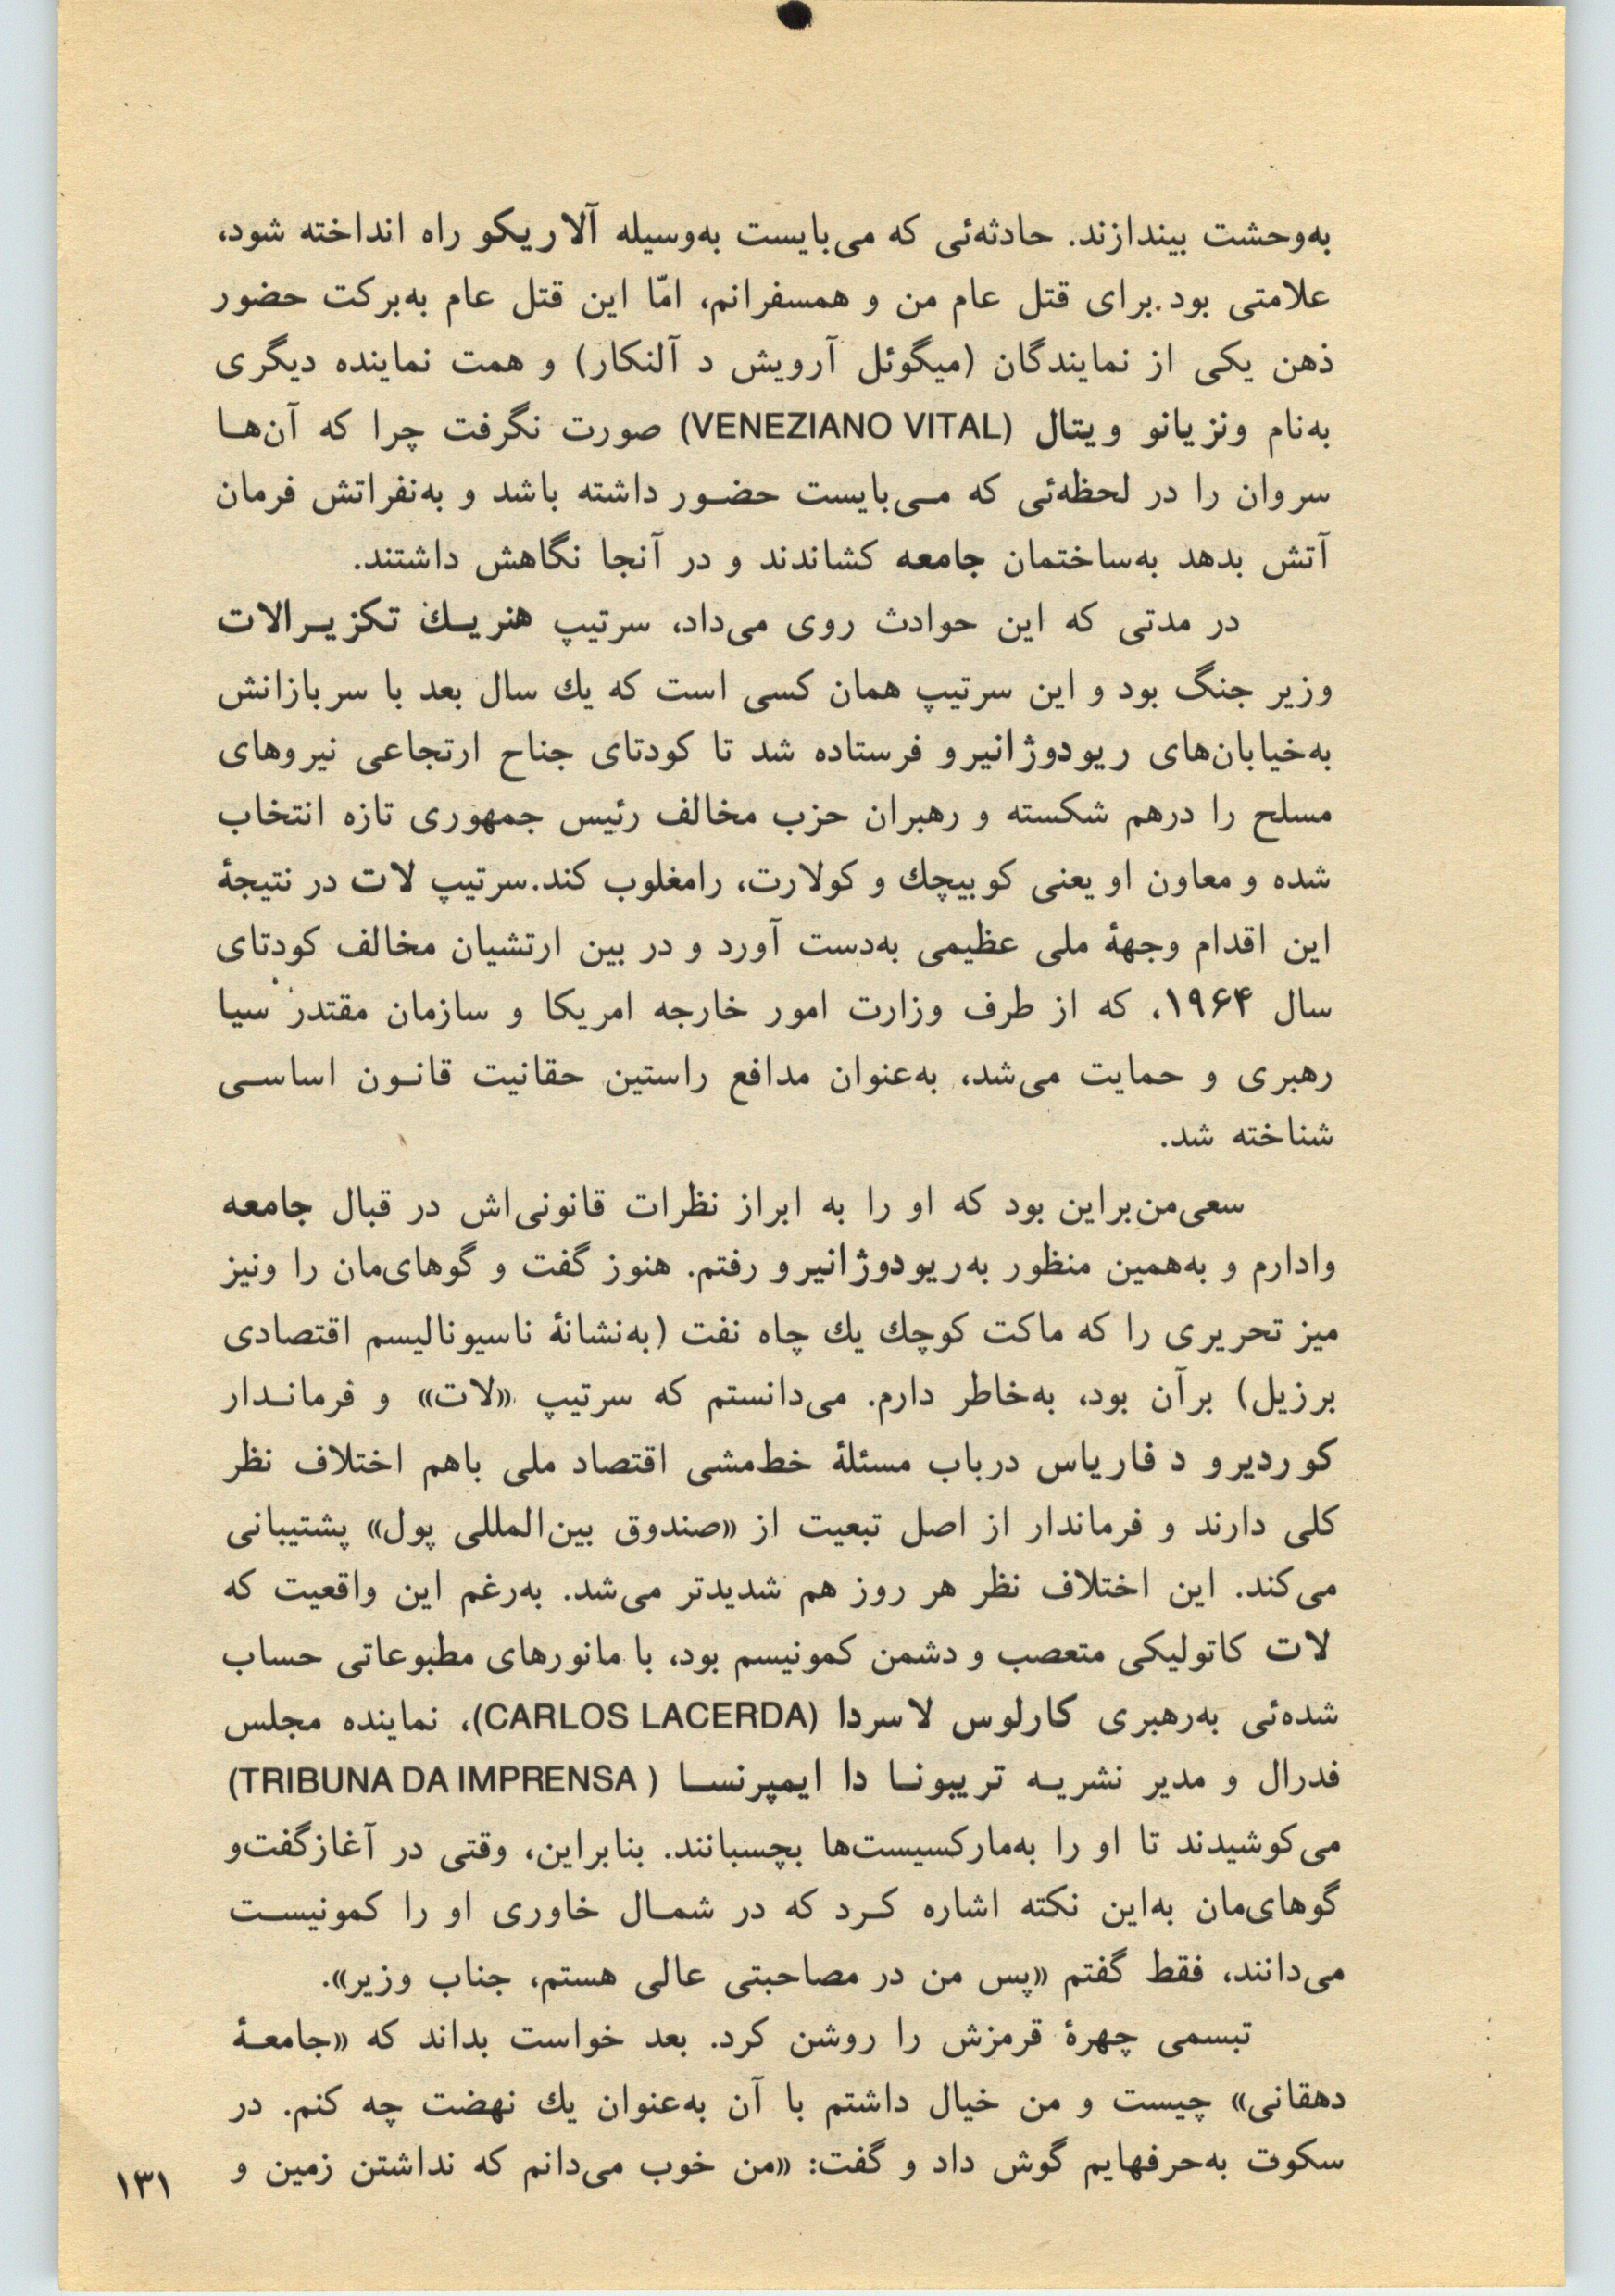 به‌وحشت بیندازند. حادثه‌ئی که می‌بایست به‌وسیله آلاریکو راه انداخته شود،
علامتی بود.برای قتل عام من و همسفرانم، امّا این قتل عام به‌برکت حضور
ذهن یکی از نمایندگان (میگوئل آرویش د آلنکار) و همت نماینده دیگری
به‌نام ونزیانو ویتال (VENEZIANO VITAL) صورت نگرفت چرا که آن‌هـا
سروان را در لحظه‌ئی که مـی‌بایست حضـور داشته باشد و به‌نفراتش فرمان
آتش بدهد به‌ساختمان جامعه کشاندند و در آنجا نگاهش داشتند.
در مدتی که این حوادث روی می‌داد، سرتیپ هنریـك تکزیـرالات
وزیر جنگ بود و این سرتیپ همان کسی است که یك سال بعد با سربازانش
به‌خیابان‌های ریودوژانیرو فرستاده شد تا کودتای جناح ارتجاعی نیروهای
مسلح را درهم شکسته و رهبران حزب مخالف رئیس جمهوری تازه انتخاب
شده و معاون او یعنی کوبیچك و کولارت، رامغلوب کند.سرتیپ لات در نتیجهٔ
این اقدام وجههٔ ملی عظیمی به‌دست آورد و در بین ارتشیان مخالف کودتای
سال ۱۹۶۴، که از طرف وزارت امور خارجه امریکا و سازمان مقتدر سیا
رهبری و حمایت می‌شد، به‌عنوان مدافع راستین حقانیت قانـون اساسـی
شناخته شد.
سعی‌من‌براین بود که او را به ابراز نظرات قانونی‌اش در قبال جامعه
وادارم و به‌همین منظور به‌ریودوژانیرو رفتم. هنوز گفت و گوهای‌مان را ونیز
میز تحریری را که ماکت کوچك یك چاه نفت (به‌نشانهٔ ناسیونالیسم اقتصادی
برزیل) برآن بود، به‌خاطر دارم. می‌دانستم که سرتیپ «لات» و فرمانـدار
کوردیرو د فاریاس درباب مسئلهٔ خط‌مشی اقتصاد ملی باهم اختلاف نظر
کلی دارند و فرماندار از اصل تبعیت از «صندوق بین‌المللی پول» پشتیبانی
می‌کند. این اختلاف نظر هر روز هم شدیدتر می‌شد. به‌رغم این واقعیت که
لات کاتولیکی متعصب و دشمن کمونیسم بود، با مانورهای مطبوعاتی حساب
شده‌ئی به‌رهبری کارلوس لاسردا (CARLOS LACERDA)، نماینده مجلس
فدرال و مدیر نشریـه تریبونـا دا ایمپرنسـا ( TRIBUNA DA IMPRENSA)
می‌کوشیدند تا او را به‌مارکسیست‌ها بچسبانند. بنابراین، وقتی در آغازگفت‌و
گوهای‌مان به‌این نکته اشاره کـرد که در شمـال خاوری او را کمونیسـت
می‌دانند، فقط گفتم «پس من در مصاحبتی عالی هستم، جناب وزیر».
تبسمی چهرهٔ قرمزش را روشن کرد. بعد خواست بداند که «جامعـهٔ
دهقانی» چیست و من خیال داشتم با آن به‌عنوان یك نهضت چه کنم. در
سکوت به‌حرفهایم گوش داد و گفت: «من خوب می‌دانم که نداشتن زمین و
۱۳۱